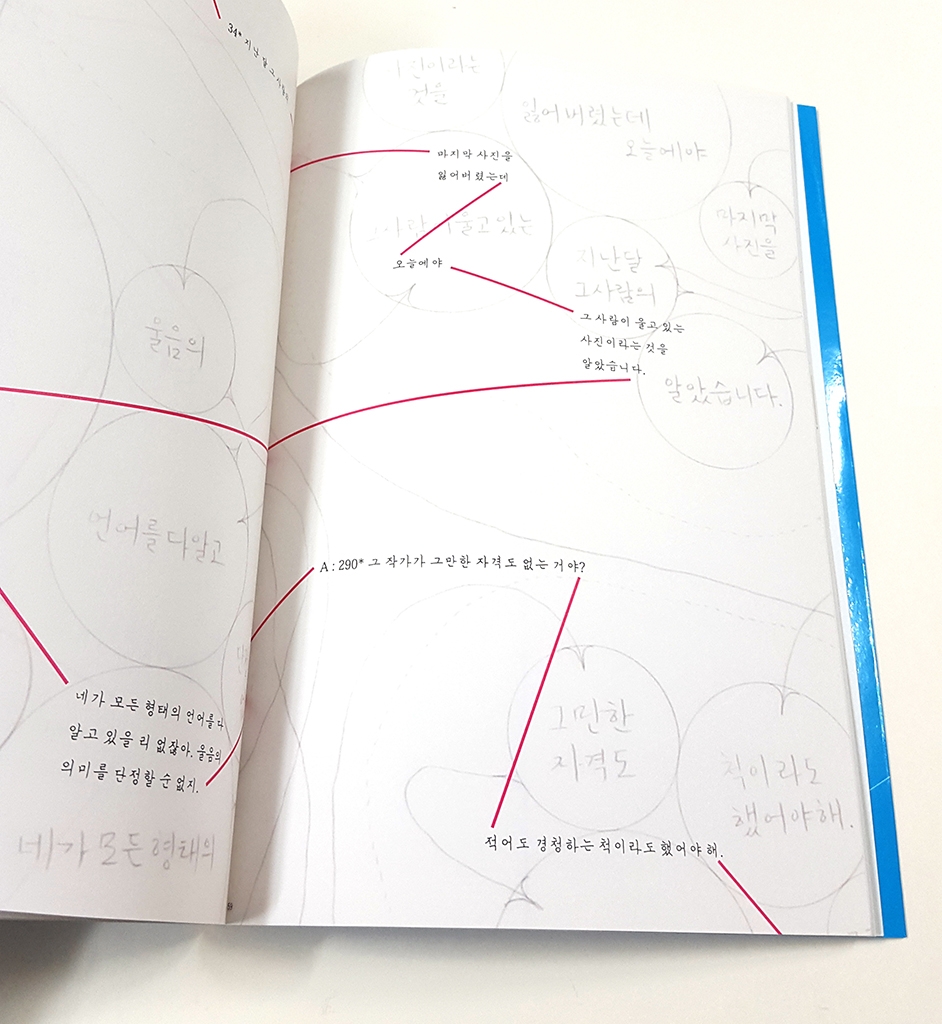 34* 지난 달 그 사람의
울음의
12
언어를 다 알고
네가 모든 형태의 언어를 다
알고 있을 리 없잖아. 울음의
의미를 단정할 순 없지.
네가 모든 형태의
59
사진이라는
것을
잃어버렸는데
오늘에야
마지막 사진을
잃어버렸는데
그 사람이 울고 있는
마지막
사진을
지난달
그사람의
오늘에야
그 사람이 울고 있는
사진이라는 것을
알았습니다.
알았습니다.
A : 290* 그 작가가 그만한 자격도 없는 거야?
그만한
자격도
척이라도
했어야해.
적어도 경청하는 척이라도 했어야 해.